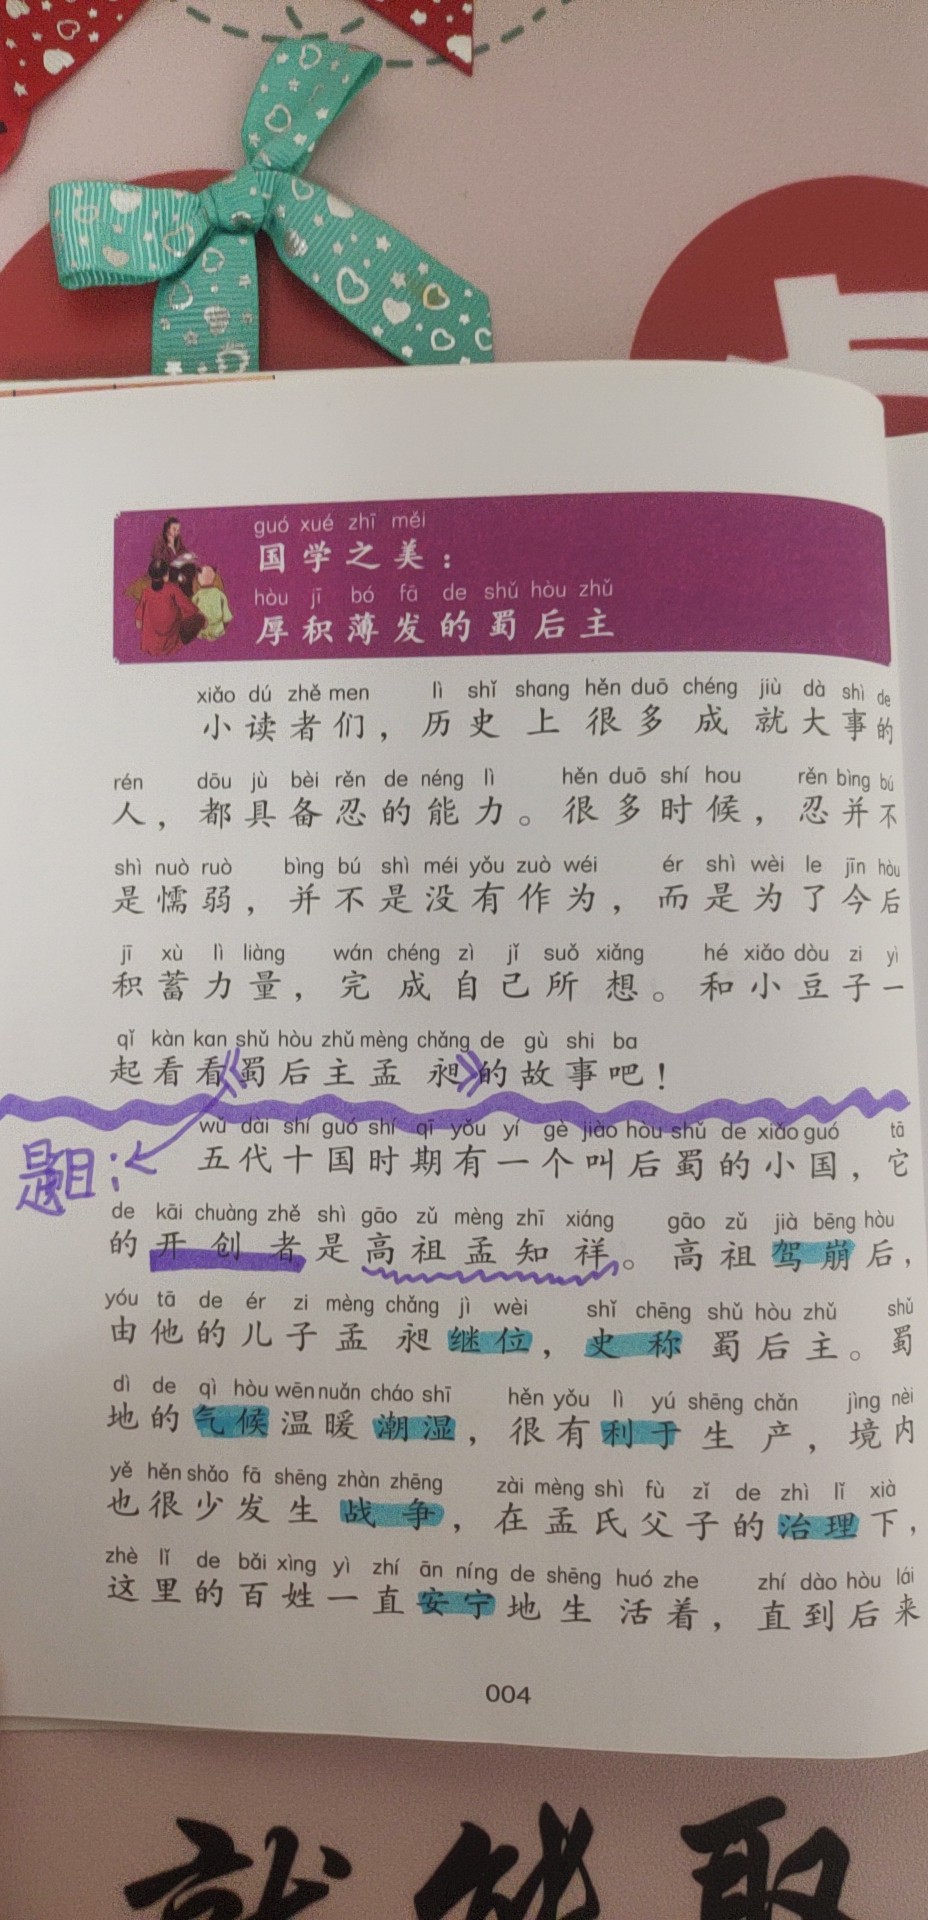 guó xué zhī měi
国学之美：
hòu jī bó fā de shǔ hòu zhǔ
厚积薄发的蜀后主
xiǎo dú zhě men lì shǐ shang hěn duō chéng jiù dà shì de
小读者们，历史上很多成就大事的
rén dōu jù bèi rěn de néng lì hěn duō shí hou rěn bìng bú
人，都具备忍的能力。很多时候，忍并不
shì nuò ruò bìng bú shì méi yǒu zuò wéi ér shì wèi le jīn hòu
是懦弱，并不是没有作为，而是为了今后
jī xù lì liàng wán chéng zì jǐ suǒ xiǎng hé xiǎo dòu zi yì
积蓄力量，完成自己所想。和小豆子一
qǐ kàn kan shǔ hòu zhǔ mèng chǎng de gù shi ba
起看看《蜀后主孟昶》的故事吧！
wǔ dài shí guó shí qī yǒu yí gè jiào hòu shǔ de xiǎo guó tā
五代十国时期有一个叫后蜀的小国，它
题目：
de kāi chuàng zhě shì gāo zǔ mèng zhī xiáng gāo zǔ jià bēng hòu
的开创者是高祖孟知祥。高祖驾崩后，
yóu tā de ér zi mèng chǎng jì wèi shǐ chēng shǔ hòu zhǔ shǔ
由他的儿子孟昶继位，史称蜀后主。蜀
dì de qì hòu wēn nuǎn cháo shī hěn yǒu lì yú shēng chǎn jìng nèi
地的气候温暖潮湿，很有利于生产，境内
yě hěn shǎo fā shēng zhàn zhēng zài mèng shì fù zǐ de zhì lǐ xià
也很少发生战争，在孟氏父子的治理下，
zhè lǐ de bǎi xìng yì zhí ān níng de shēng huó zhe zhí dào hòu lái
这里的百姓一直安宁地生活着，直到后来
004
就能取